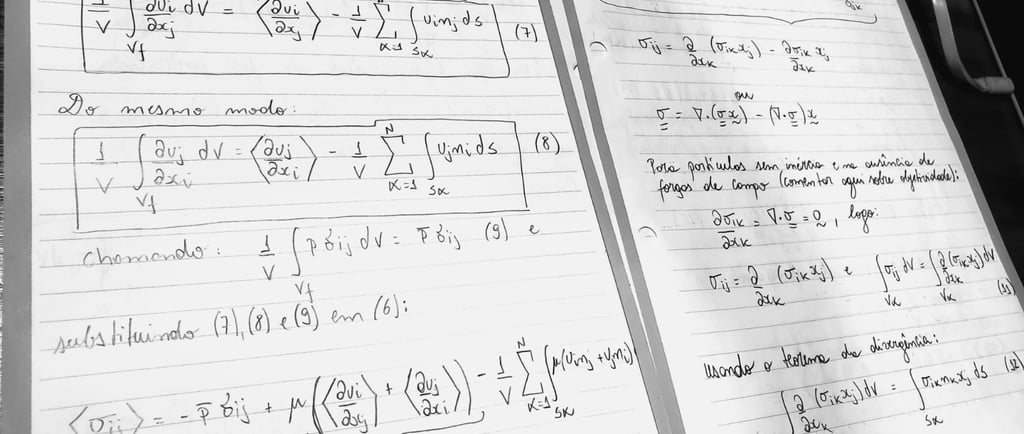 1/V ∫_{Vf} ∂vi/∂xj dV = ⟨∂vi/∂xj⟩ - 1/V Σ_{α=1} ∫_{Sα} vi nj ds (7)
Do mesmo modo:
1/V ∫_{Vf} ∂vj/∂xi dV = ⟨∂vj/∂xi⟩ - 1/V Σ_{α=1}^{N} ∫_{Sα} vj ni ds (8)
chamando: 1/V ∫_{Vf} p δij dV = p̄ δij (9) e
substituindo (7), (8) e (9) em (6):
⟨σij⟩ = - p̄ δij + μ(⟨∂vi/∂xj⟩ + ⟨∂vj/∂xi⟩) - 1/V Σ_{α=1}^{N} ∫_{Sα} μ(vi nj + vj ni)
σij = ∂/∂xk (σik xj) - ∂σik/∂xk xj
ou
σ = ∇·(σx) - (∇·σ)x
Para partículas sem inércia e na ausência de
forças de campo (comentar aqui sobre objetividade):
∂σik/∂xk = ∇·σ = 0, logo:
σij = ∂/∂xk (σik xj) e ∫_{Vα} σij dV = ∫_{Vα} ∂/∂xk (σik xj) dV (11)
Usando o teorema da divergência:
∫ ∂/∂xk (σik xj) dV = ∫_{Sα} σik nk xj ds (12)